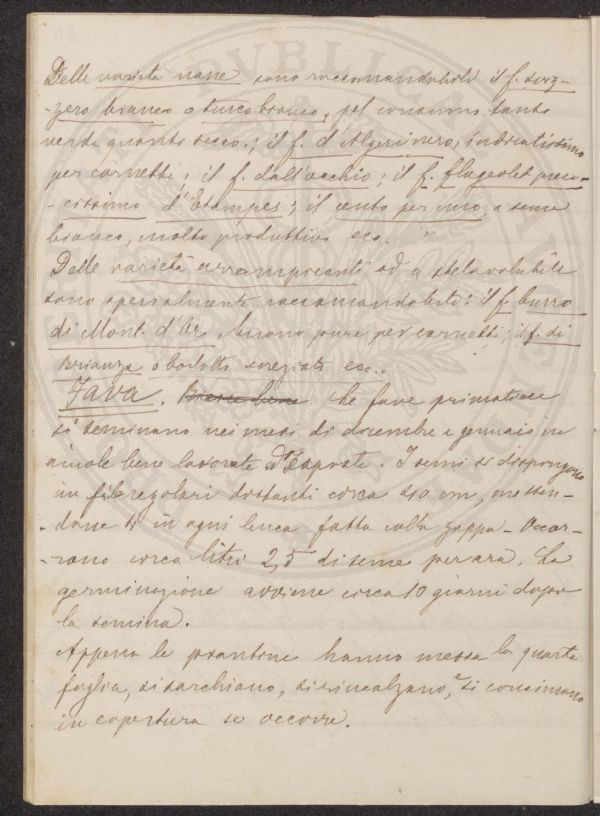 Delle varietà nane sono raccomandabili il f. sviz-
-zero bianco o turco bianco, pel consumo tanto
verde quanto secco.; il f. d'Algeri nero, indicatissimo
per cornetti; il f. dall'occhio; il f. flageolet preco-
-cissimo d'Etampes; il cento per uno, a seme
bianco, molto produttivo ecc.
Delle varietà arrampicanti od a stelo volubile
sono specialmente raccomandabili: il f. burro
di Mont. d'Or, buono pure per cornetti; il f. di
Brianza o borlotto svegiato ecc..
Fava. Le fave primaticce
si seminano nei mesi di dicembre e gennaio in
aiuole bene lavorate ed esposte. I semi si dispongono
in file regolari distanti circa 40 cm, metten-
-done 4 in ogni buca fatta colla zappa - Occor-
-rono circa litri 2,5 di seme per ara. La
germinazione avviene circa 10 giorni dopo
la semina.
Appena le piantine hanno messa la quarta
foglia, si sarchiano, si rincalzano, e si concimano
in copertura se occorre.